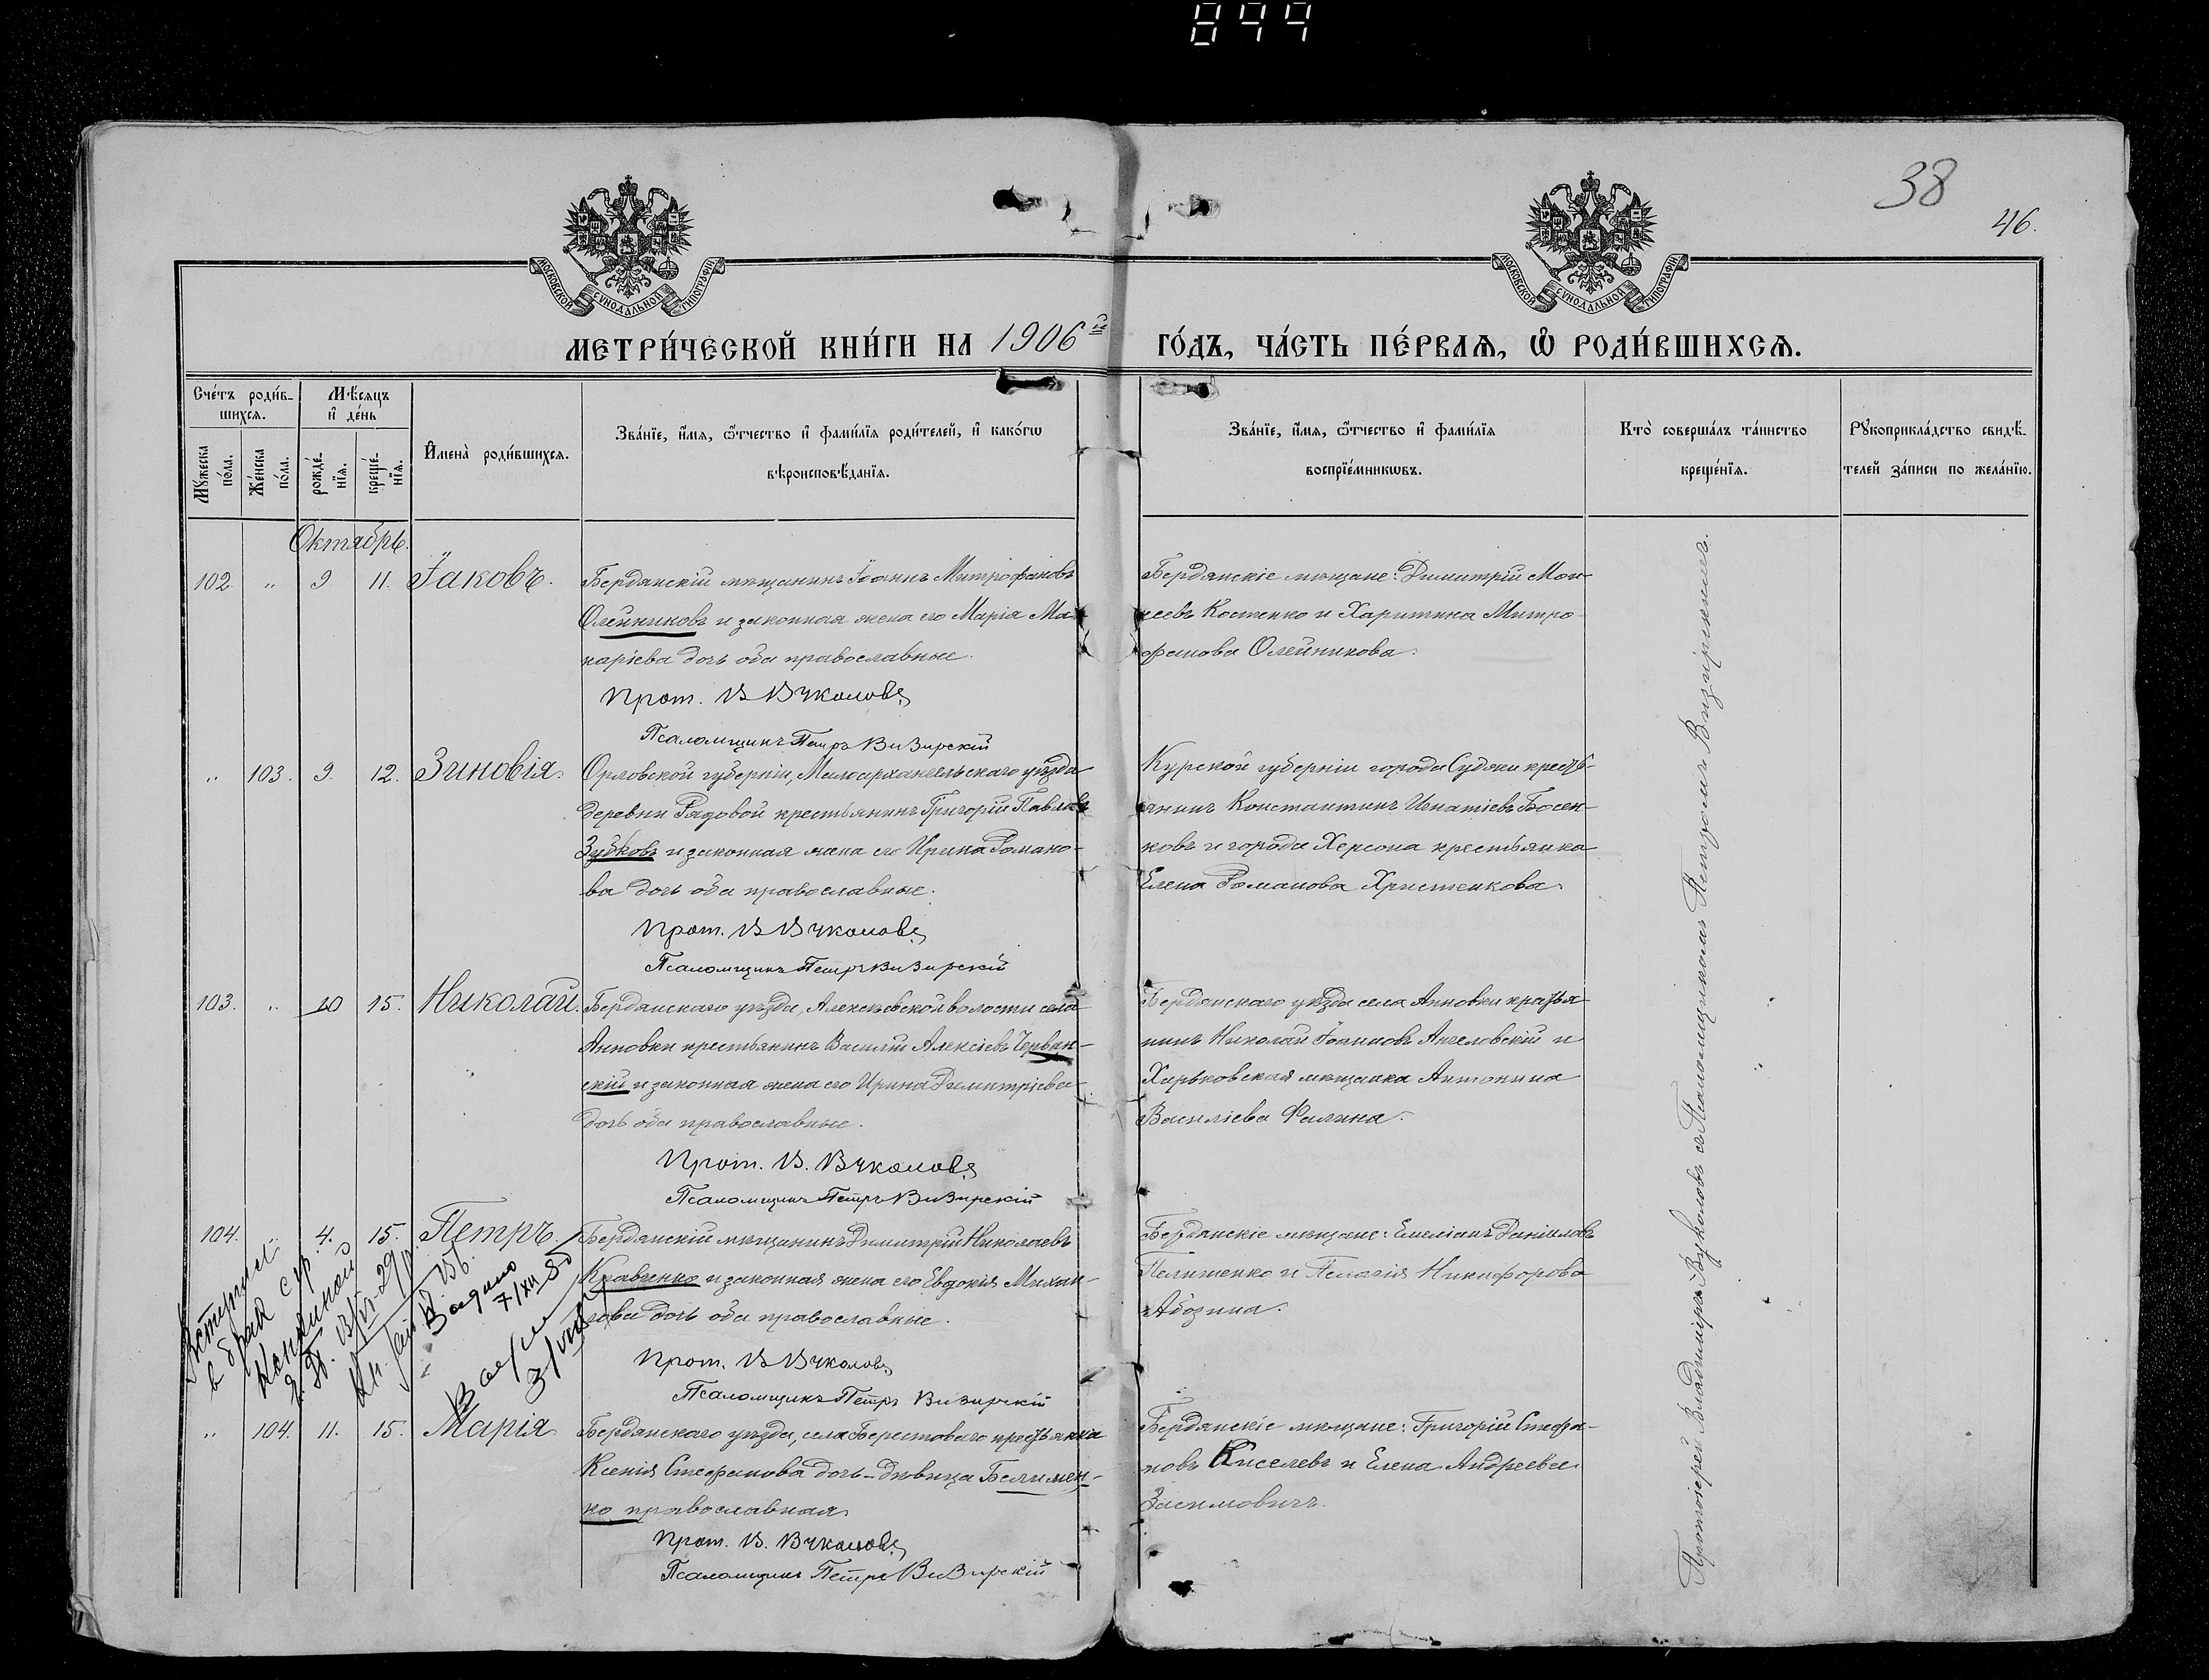 899
38
46.
МОСКОВСКОЙ СѴНОДАЛЬНОЙ ТИПОГРАФІИ
МОСКОВСКОЙ СѴНОДАЛЬНОЙ ТИПОГРАФІИ
МЕТРИ́ЧЕСКОЙ КНИ́ГИ НА 1906й ГО́ДЪ, ЧА́СТЬ ПЕ́РВАѦ, Ѽ РОДИ́ВШИХСѦ.
Сче́тъ роди́в-
шихсѧ.
Мѣ́сѧцъ
и҆ де́нь
Мꙋ́жеска
по́ла.
Же́нска
по́ла.
рожде́-
нїѧ.
креще́-
нїѧ.
И҆мена̀ роди́вшихсѧ.
Зва́нїе, и҆́мѧ, ѻ҆́тчество и҆ фами́лїѧ роди́телей, и҆ како́гѡ
вѣроисповѣ́данїѧ.
Зва́нїе, и҆́мѧ, ѻ҆́тчество и҆ фами́лїѧ
воспрїе́мникѡвъ.
Кто̀ соверша́лъ та́инство
креще́нїѧ.
Рꙋкоприкла́дство свидѣ́-
телей за́писи по жела́нїю.
Октябрь.
102 " 9 11. Іаковъ.
Бердянскій мѣщанинъ Іоаннъ Митрофановъ
Олейниковъ и законная жена его Марія Ма-
каріева дочь оба православные.
Прот. В Вуколовъ
Псаломщикъ Петръ Визирскій
Бердянскіе мѣщане: Димитрій Мои-
сеевъ Костенко и Харитина Митро-
фанова Олейникова.
" 103. 9. 12. Зиновія.
Орловской губерніи, Малоархангельскаго уѣзда
деревни Рядовой крестьянинъ Григорій Павловъ
Зубковъ и законная жена его Ирина Романо-
ва дочь оба православные.
Прот. В Вуколовъ
Псаломщикъ Петръ Визирскій
Курской губерніи города Суджи кресть-
янинъ Константинъ Игнатіевъ Босен-
ковъ и города Херсона крестьянка
Елена Романова Христенкова.
103. " 10 15. Николай.
Бердянскаго уѣзда, Алексѣевской волости села
Анновки крестьянинъ Василій Алексіевъ Черван-
скій и законная жена его Ирина Димитріева
дочь оба православные.
Прот. В. Вуколовъ
Псаломщикъ Петръ Визирскій
Бердянскаго уѣзда села Анновки крестья-
нинъ Николай Іоанновъ Ангеловскій и
Харьковская мѣщанка Антонина
Василіева Фалина.
104. " 4. 15. Петръ.
Бердянскій мѣщанинъ Димитрій Николаевъ
Кравченко и законная жена его Евдокія Михаи-
лова дочь оба православные.
Прот. В Вуколовъ
Псаломщикъ Петръ Визирскій
Бердянскіе мѣщане: Емеліанъ Даніиловъ
Пелитенко и Пелагія Никифорова
Абозина.
в брак с гр.
Выдано
7/XII
" 104. 11. 15. Марія
Бердянскаго уѣзда, села Берестоваго крестьянка
Ксенія Стефанова дочь - дѣвица Белимен-
ко православная.
Прот. В. Вуколовъ
Псаломщикъ Петръ Визирскій
Бердянскіе мѣщане: Григорій Стефа-
новъ Киселевъ и Елена Андреева
Засимовичъ.
Протоіерей Владиміръ Вуколовъ съ Псаломщикомъ Петромъ Визирскимъ.